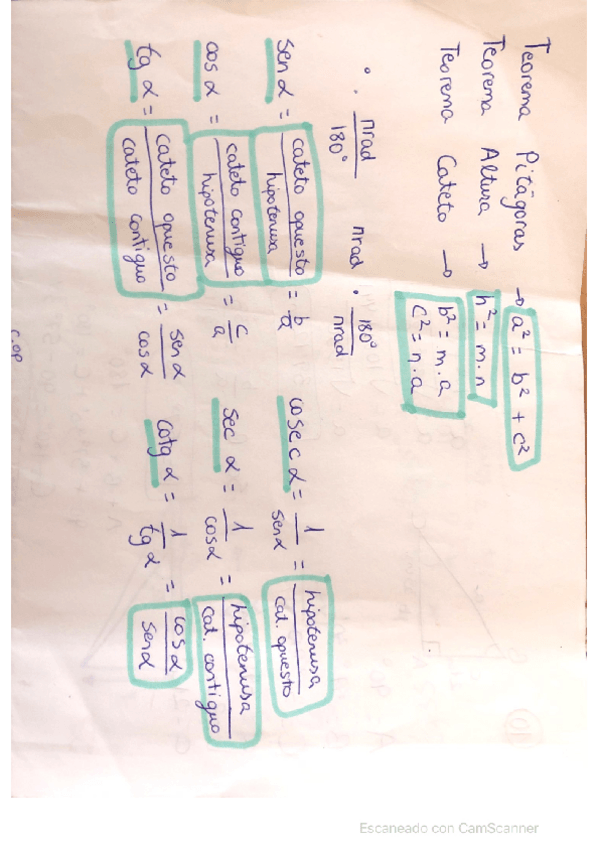 Teorema Pitágoras → a² = b² + c²
Teorema Altura → h² = m·n
Teorema Cateto → b² = m·a
c² = n·a
° · πrad/180° πrad · 180°/πrad
sen α = cateto opuesto/hipotenusa = b/a
cosec α = 1/sen α = hipotenusa/cat. opuesto
cos α = cateto contiguo/hipotenusa = c/a
sec α = 1/cos α = hipotenusa/cat. contiguo
tg α = cateto opuesto/cateto contiguo = sen α/cos α
cotg α = 1/tg α = cos α/sen α
c.op
Escaneado con CamScanner